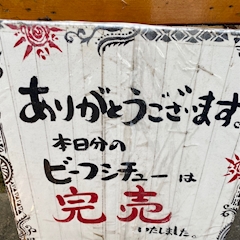 ありがとうございます。
本日分の
ビーフシチューは
完売
いたしました。